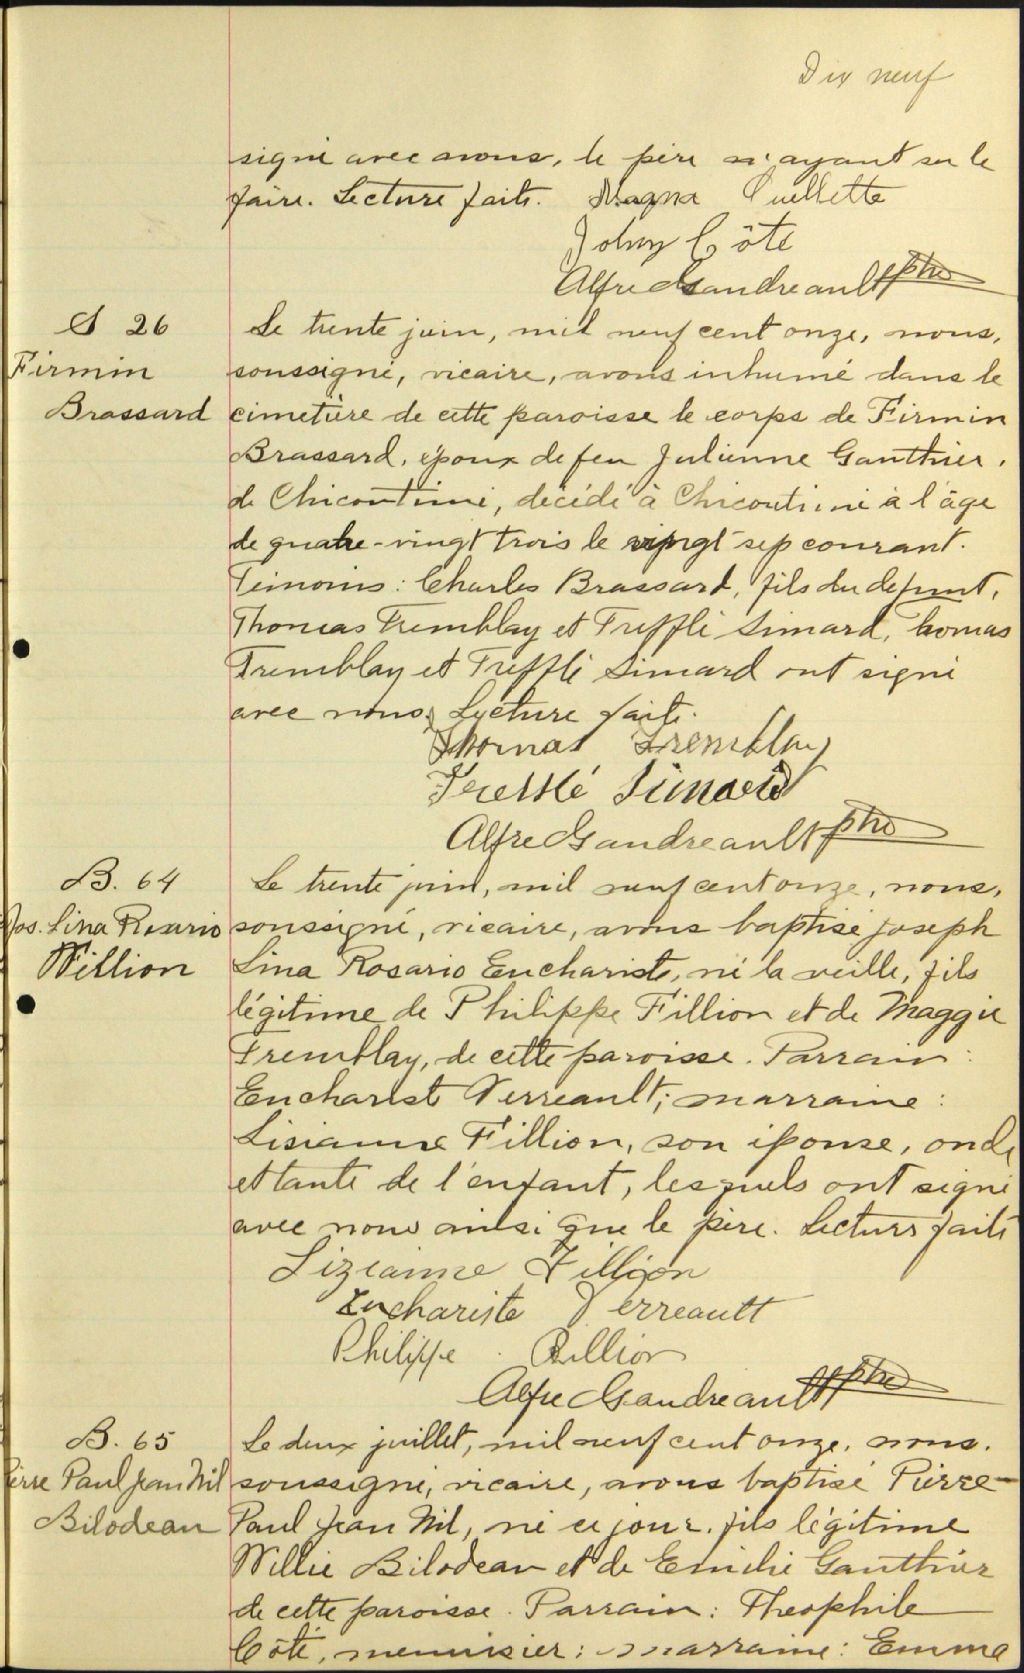 Dix neuf
signé avec nous, le père n'ayant su le
faire. Lecture faite. Magna Ouellette
Johny Côté
Alfred Gaudreault ptre
S 26
Firmin
Brassard
Le trente juin, mil neuf cent onze, nous,
soussigné, vicaire, avons inhumé dans le
cimetière de cette paroisse le corps de Firmin
Brassard, époux de feu Julienne Gauthier,
de Chicoutimi, décédé à Chicoutimi à l'âge
de quatre-vingt trois le vingt sep courant.
Témoins: Charles Brassard, fils du defunt,
Thomas Tremblay et Trefflé Simard, Thomas
Tremblay et Trefflé Simard ont signé
avec nous. Lecture faite.
Thomas Tremblay
Trefflé Simard
Alfred Gaudreault ptre
B. 64
Jos. Lina Rosario
Fillion
Le trente juin, mil neuf cent onze, nous,
soussigné, vicaire, avons baptisé Joseph
Lina Rosario Euchariste, né la veille, fils
légitime de Philippe Fillion et de Maggie
Tremblay, de cette paroisse. Parrain:
Eucharist Verreault; marraine:
Lisianne Fillion, son épouse, oncle
et tante de l'enfant, lesquels ont signé
avec nous ainsi que le père. Lecture faite
Lizianne Fillion
Euchariste Verreault
Philippe Fillion
Alfred Gaudreault ptre
B. 65
Pierre Paul Jean Nil
Bilodeau
Le deux juillet, mil neuf cent onze, nous,
soussigné, vicaire, avons baptisé Pierre
Paul Jean Nil, né ce jour, fils légitime
Willie Bilodeau et de Emilie Gauthier
de cette paroisse. Parrain: Theophile
Côté, menuisier; marraine: Emma